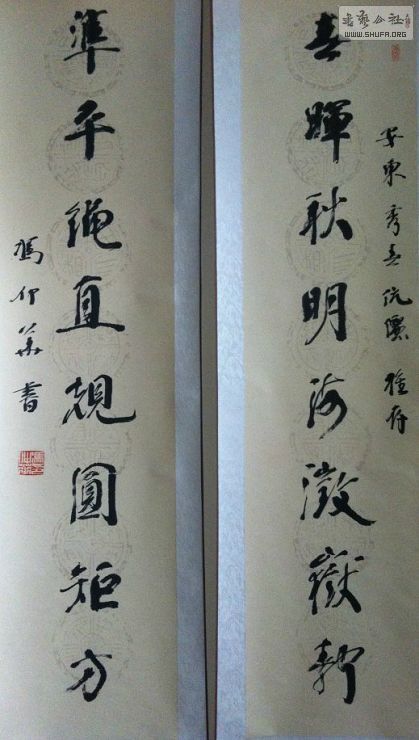 書藝公社
WWW.SHUFA.ORG
安東秀春伉儷雅存
春暉秋明海澂嶽靜
準平繩直規圓矩方
馮 書